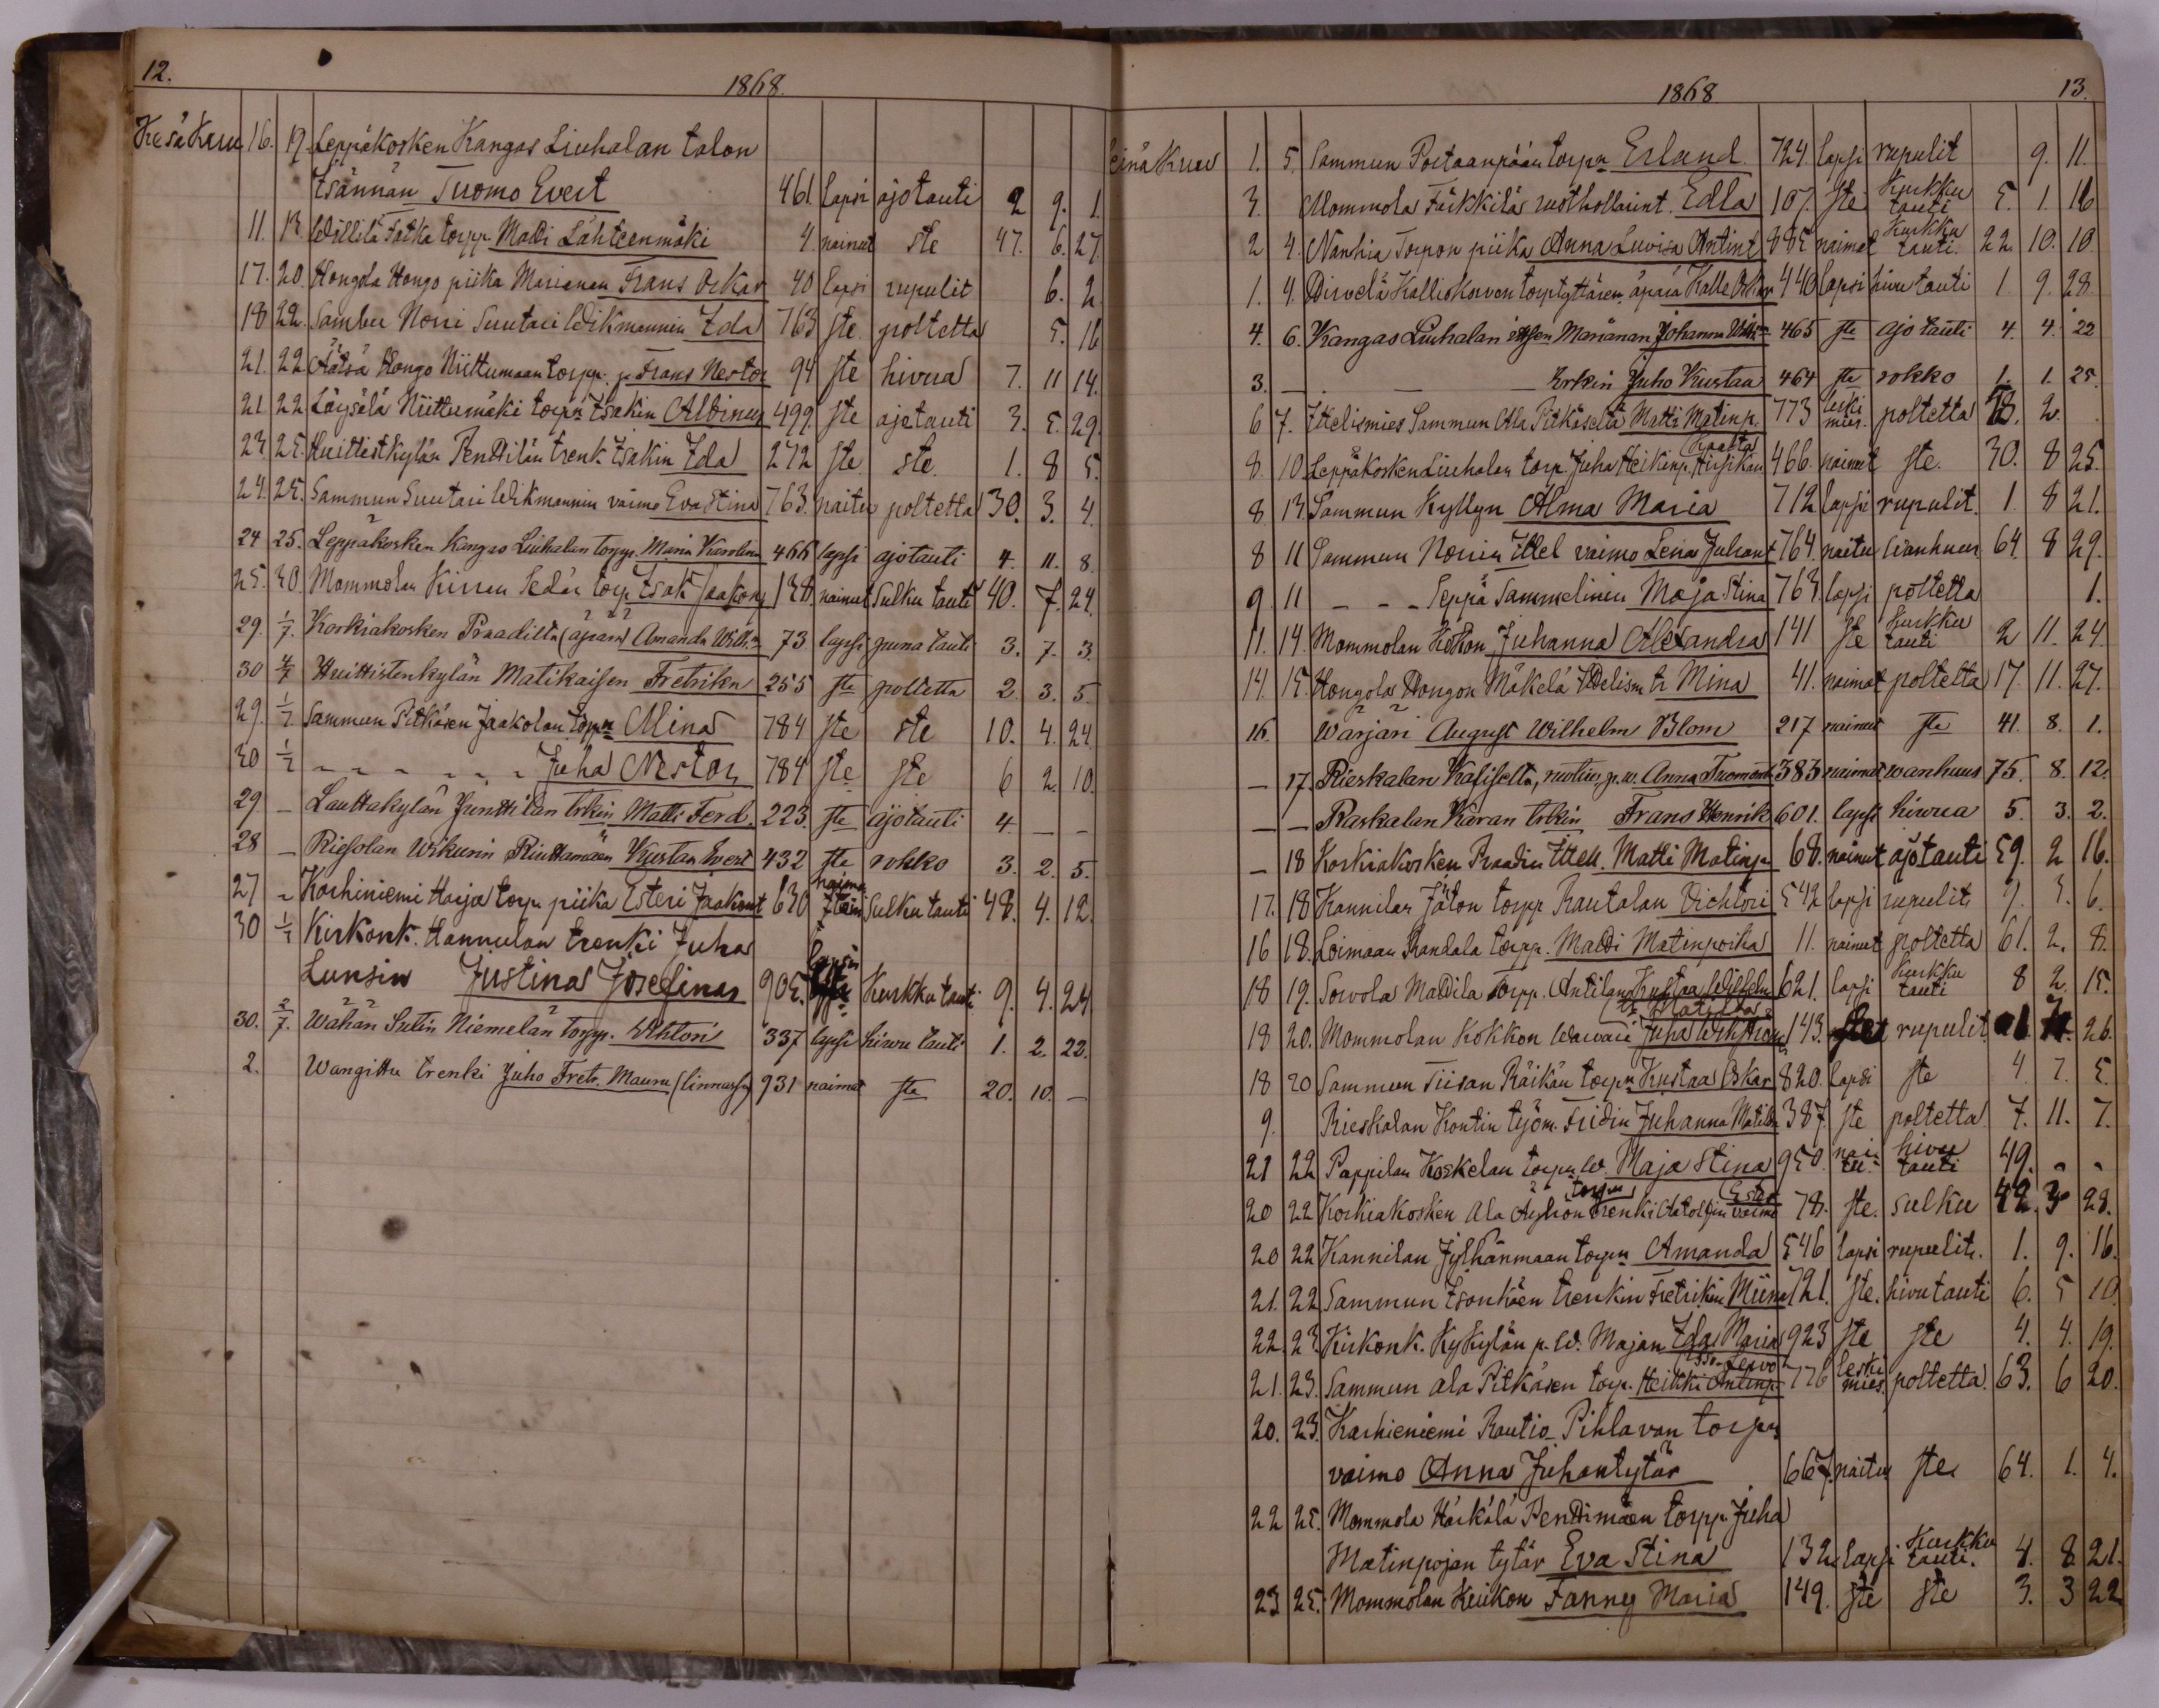 12.
1868.
Kesä Kuu 16. 19. Leppäkosken Kangas Liuhalan talon
Isännän Tuomo Evert 461. lapsi ajotauti 2 9. 1.
11. 13. Fatka torpp. Matti Lähteenmäki 4. nainut ste 47. 6. 27
17. 20. Hongola Hongo piika Marianan Frans Oskar 40 lapsi rupulit 6. 2
18 22. Sambu Norri Suutari Wikmannin Ida 763 ste poltetta 5. 16
21. 22 Hongo Niittumaan torpp. p. Frans Nestor 94 ste hivua 7. 11 14.
21. 22 Löysälä Niittumäki torpn Isakin Albinus 499. ste ajotauti 3. 5. 29.
23. 25. Huittistkylän Penttilän trenk Isakin Ida 272 ste ste. 1. 8 5.
24. 25. Sammun Suutari Wikmannin vaimo Eva Stina 763. naitu poltetta 30. 3. 4.
24 25. Leppäkosken Kangas Liuhalan torpp. Maria Karolina 466 lapsi ajotauti 4. 11. 8.
25. 30. Mommolan Kirren torp Isak Jaakonp 138. nainut Sulku tauti 40. 7. 24.
29. 1/7. Korkiakosken Praadilta (äpärä) Amanda Willi.a 73 lapsi puna tauti 3. 7. 3.
30 4/7 Huittistenkylän Matikaisen Fretrika 255 ste poltetta 2. 3. 5.
29. 1/7 Sammun Pitkäsen Jaakolan torpn Mina 784 ste ste 10. 4. 24
30 1/7 - - - - - - Juha Nestor 784 ste ste 6 2. 10.
29. - Lauttakylän Junttilan trkin Matti Ferd. 223. ste ajotauti 4. - -
28 - Riesolan Wikurin Riuttamäen Kustaa Evert 432 ste rokko 3. 2. 5.
27 - Korhiniemi Harja torp. piika Esteri Jaakont 630 naima Sulku tauti 48. 4. 12.
30 1/7 Kirkonk. Hannulan trenki Juha
Lunsin Justina Josefina 905. lapsi Kurkku tauti 9. 4. 24
30. 2/7. Wähän Sutin Niemelän torpp. Wihtori 337 lapsi hivu tauti 1. 2. 22.
2. Wangittu trenki Juho Fretr. Mauru (linnassa) 931 naimat ste 20. 10. -
1868
13.
einä Kuu 1. 5. Sammun Portaanpään torpn Erland 724. lapsi rupulit 9. 11.
3. Mommola Färkkilä rusthollarint. Edla 107. ste Kurkku tauti 5. 1. 16
2 4. Nanhia Torpon piika Anna Luvisa Antint naimat Kurkku tauti. 22. 10. 10.
1. 4. Dirvelä Kalliokorvon torptyttären äpärä Kalle Oskar 440 lapsi hivu tauti 1 9. 28.
4. 6. Kangas Liuhalan Marianan Johanna 465 ste ajo tauti 4. 4. 22
3. - - - trkin Juho Kustaa 464 ste rokko 1. 1. 25.
6 7. Ittelismies Sammun Ala Pitkäseltä Matti Matinp. 773 leski mies. poltetta 2.
8. 10. Leppäkosken Liuhalan torp. Juha Heikinp. 466. nainut ste. 30. 8 25.
8 13. Sammun Kyllyn Alma Maria 712 lapsi rupulit. 1. 8 21.
8 11 Sammun Norrin Ittel vaimo Lena Juhant 764. naitu Wanhuus 64. 8 29.
9. 11 - - - Seppä Sammelinin Maja Stina 763 lapsi poltetta 1.
11. 14. Mommolan Kokon Juhanna Alexandra 141 ste Kurkku tauti 2 11. 24.
14. 15. Hongola Hongon Mäkelä Ittelism tr Mina 41. naimat poltetta 17. 11. 27.
16. Wärjäri August Wilhelm Blom 217 nainut ste 41. 8. 1.
- 17. Rieskalan Kasiselta, p.w. Anna Tuomant 383 naimat wanhuus 75. 8. 12.
- - Raskalan Karan trkin Frans Henrik 601. lapsi hiwua 5. 3. 2.
- 18 Korkiakosken Praadin Ittell. Matti Matinp. 68. nainut ajotauti 59. 2 16.
17. 18 Kannilan Jäton torpp Rautalan Vichtori 542 lapsi rupulit. 6.
16 18. Loimaan Kandala torpp. Matti Matinpoika 11. nainut poltetta 61. 2. 8.
18 19. Sorvola Mattila torpp. Antilan Kustaa Wilhelm 621. lapsi Kurkku tauti 8 2. 15.
18 20. Mommolan Kokkon Juha 143. rupulit 26.
18 20 Sammun Tiisan Räikän torpn Kustaa Oskar 820. lapsi ste 4. 7. 5.
9. Rieskalan Kontin työm. Fridin Juhanna Matilda 387. ste poltetta 7. 11. 7.
21 22 Pappilan Koskelan torpn w. Maja Stina 950. naitu.- hivu tauti 49. - -
20 22 Korkiakosken Ala Äyhön torpan trenki vaimo Ester 78. ste. sulku 42. 3 28.
20 22 Kannilan Jylhänmaan torpn Amanda 546 lapsi rupulit. 1. 9. 16.
21. 22. Sammun Isonhöen trenkin Fretrikin Miina 721. ste. hivutauti 6. 5 10
22. 23. Kirkonk. Kykylän p. w. Majan Ida Maria 923 ste ste 4. 4. 19.
21. 23. Sammun ala Pitkäsen torp. Heikki Antinp. 776 leski mies. poltetta. 63. 6 20.
20. 23. Karhieniemi Rautio Pihlavan torpas
vaimo Anna Juhantytär 667. naitu ste 64. 1. 4.
22 25. Mommola Härkälä Penttimäen torpp. Juha
Matinpojan tytär Eva Stina 132. lapsi Kurkku tauti. 4. 8. 21.
23 25. Mommolan Keikon Fanny Maria 149. ste ste 3. 3 22